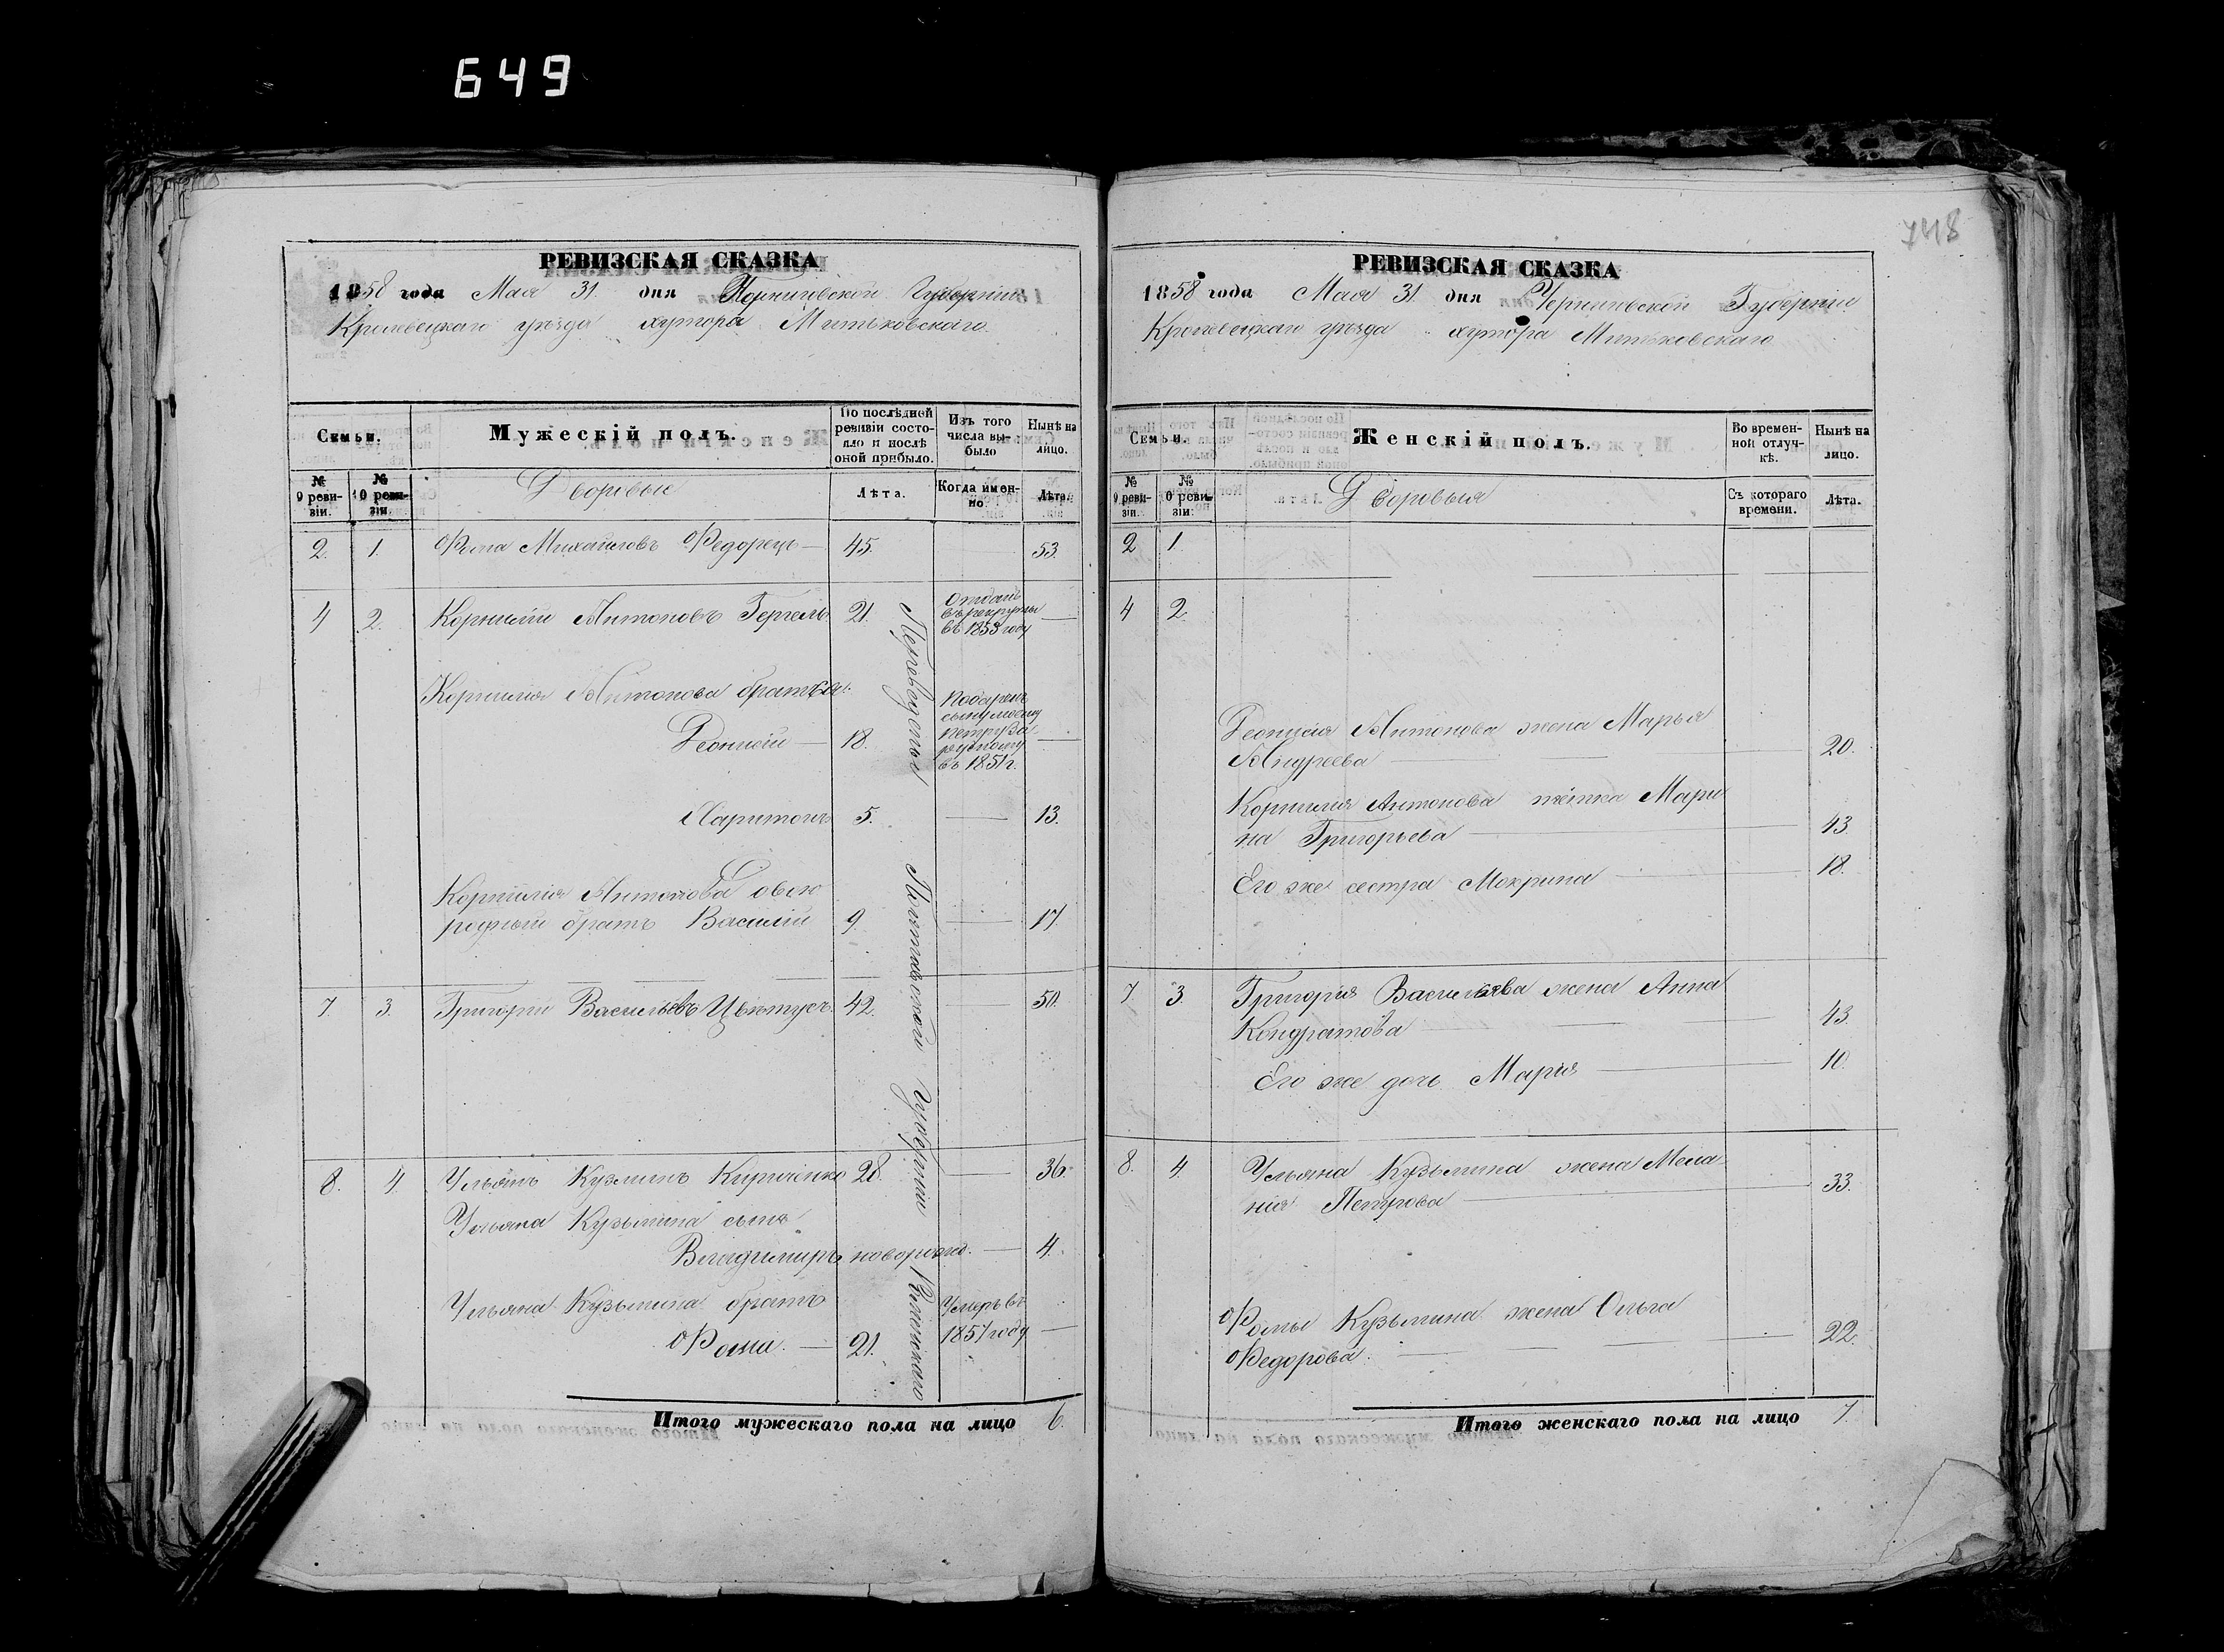 649
748
РЕВИЗСКАЯ СКАЗКА
1858 года Мая 31. дня Черниговской Губерніи
Кролевецкаго уѣзда хутора Митьковскаго
Семьи.
Мужескій полъ.
По послѣдней ревизіи состояло и послѣ оной прибыло.
Изъ того числа выбыло
Нынѣ на лицо.
№ 9 ревизіи.
№ 10 ревизіи.
Дворовые
Лѣта.
Когда именно.
Лѣта.
2. 1. Фома Михайловъ Федорецъ 45. 53.
4 2. Корнилій Антоновъ Гергель 21. Отданъ въ рекруты въ 1853 году
Корнилія Антонова братья:
Деонисій 18. Подаренъ сыну моему Петру въ 1851 г.
Харитонъ 5. 13.
Корнилія Антонова двоюродный братъ Василій 9. 17.
7. 3. Григорій Васильевъ 42. 50.
8. 4. Ульянъ Кузминъ Кириченко 28. 36.
Ульяна Кузьмина сынъ
Владимиръ новорожд. 4.
Ульяна Кузьмина братъ
Фома. 21. Умеръ въ 1857 году
Переведены Полтавской губерніи
Итого мужескаго пола на лицо 6.
РЕВИЗСКАЯ СКАЗКА
1858 года Мая 31. дня Черниговской Губерніи
Кролевецкаго уѣзда хутора Митьковскаго
Семьи.
Женскій полъ.
Во временной отлучкѣ.
Нынѣ на лицо.
№ 9 ревизіи.
№ 10 ревизіи.
Дворовыя
Съ котораго времени.
Лѣта.
2 1.
4 2.
Деонисія Антонова жена Марья
Андреева 20.
Корнилія Антонова тётка Мари
на Григорьева 43.
Его же сестра Мокрина 18.
7. 3. Григорія Васильева жена Анна
Кондратова 43.
Его же дочь Марія 10.
8. 4. Ульяна Кузьмина жена Мела
нія Петрова 33.
Фомы Кузьмина жена Ольга
Федорова. 22.
Итого женскаго пола на лицо 7.